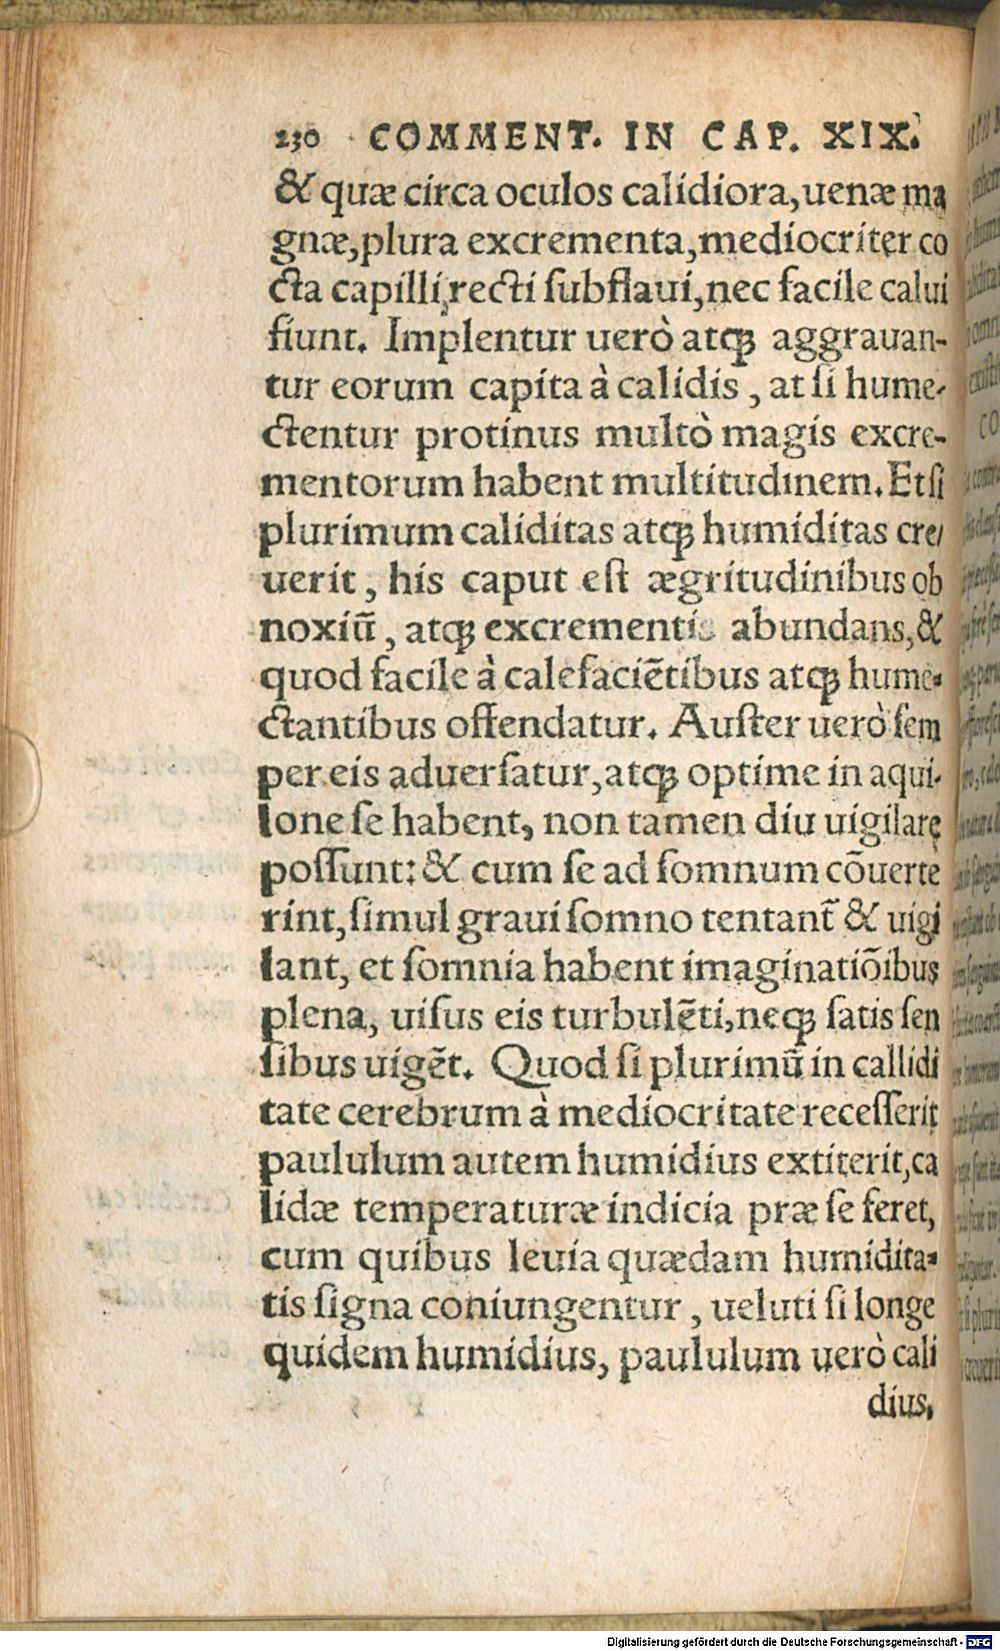 230 COMMENT. IN CAP. XIX.
& quæ circa oculos calidiora,uenæ ma
gnæ,plura excrementa,mediocriter co
cta capilli,recti ſubflaui,nec facile calui
fiunt. Implentur uerò atꝗ aggrauan-
tur eorum capita à calidis , at ſi hume-
ctentur protinus multò magis excre-
mentorum habent multitudinem. Et ſi
plurimum caliditas atꝗ humiditas cre/
uerit , his caput eſt ægritudinibus ob
noxiū , atꝗ excrementis abundans,&
quod facile à calefaciētibus atꝗ hume-
ctantibus offendatur. Auſter uerò ſem
per eis aduerſatur,atꝗ optime in aqui-
lone ſe habent, non tamen diu uigilare
poſſunt: & cum ſe ad ſomnum cōuerte
rint,ſimul graui ſomno tentant̄ & uigi
lant, et ſomnia habent imaginatiōibus
plena, uiſus eis turbulēti,neꝗ ſatis ſen
ſibus uigēt. Quod ſi plurimū in callidi
tate cerebrum à mediocritate receſſerit
paululum autem humidius extiterit,ca
lidæ temperaturæ indicia præ ſe feret,
cum quibus leuia quædam humidita-
tis ſigna coniungentur , ueluti ſi longe
quidem humidius, paululum uerò cali
dius,
Digitalisierung gefördert durch die Deutsche Forschungsgemeinschaft - DFG